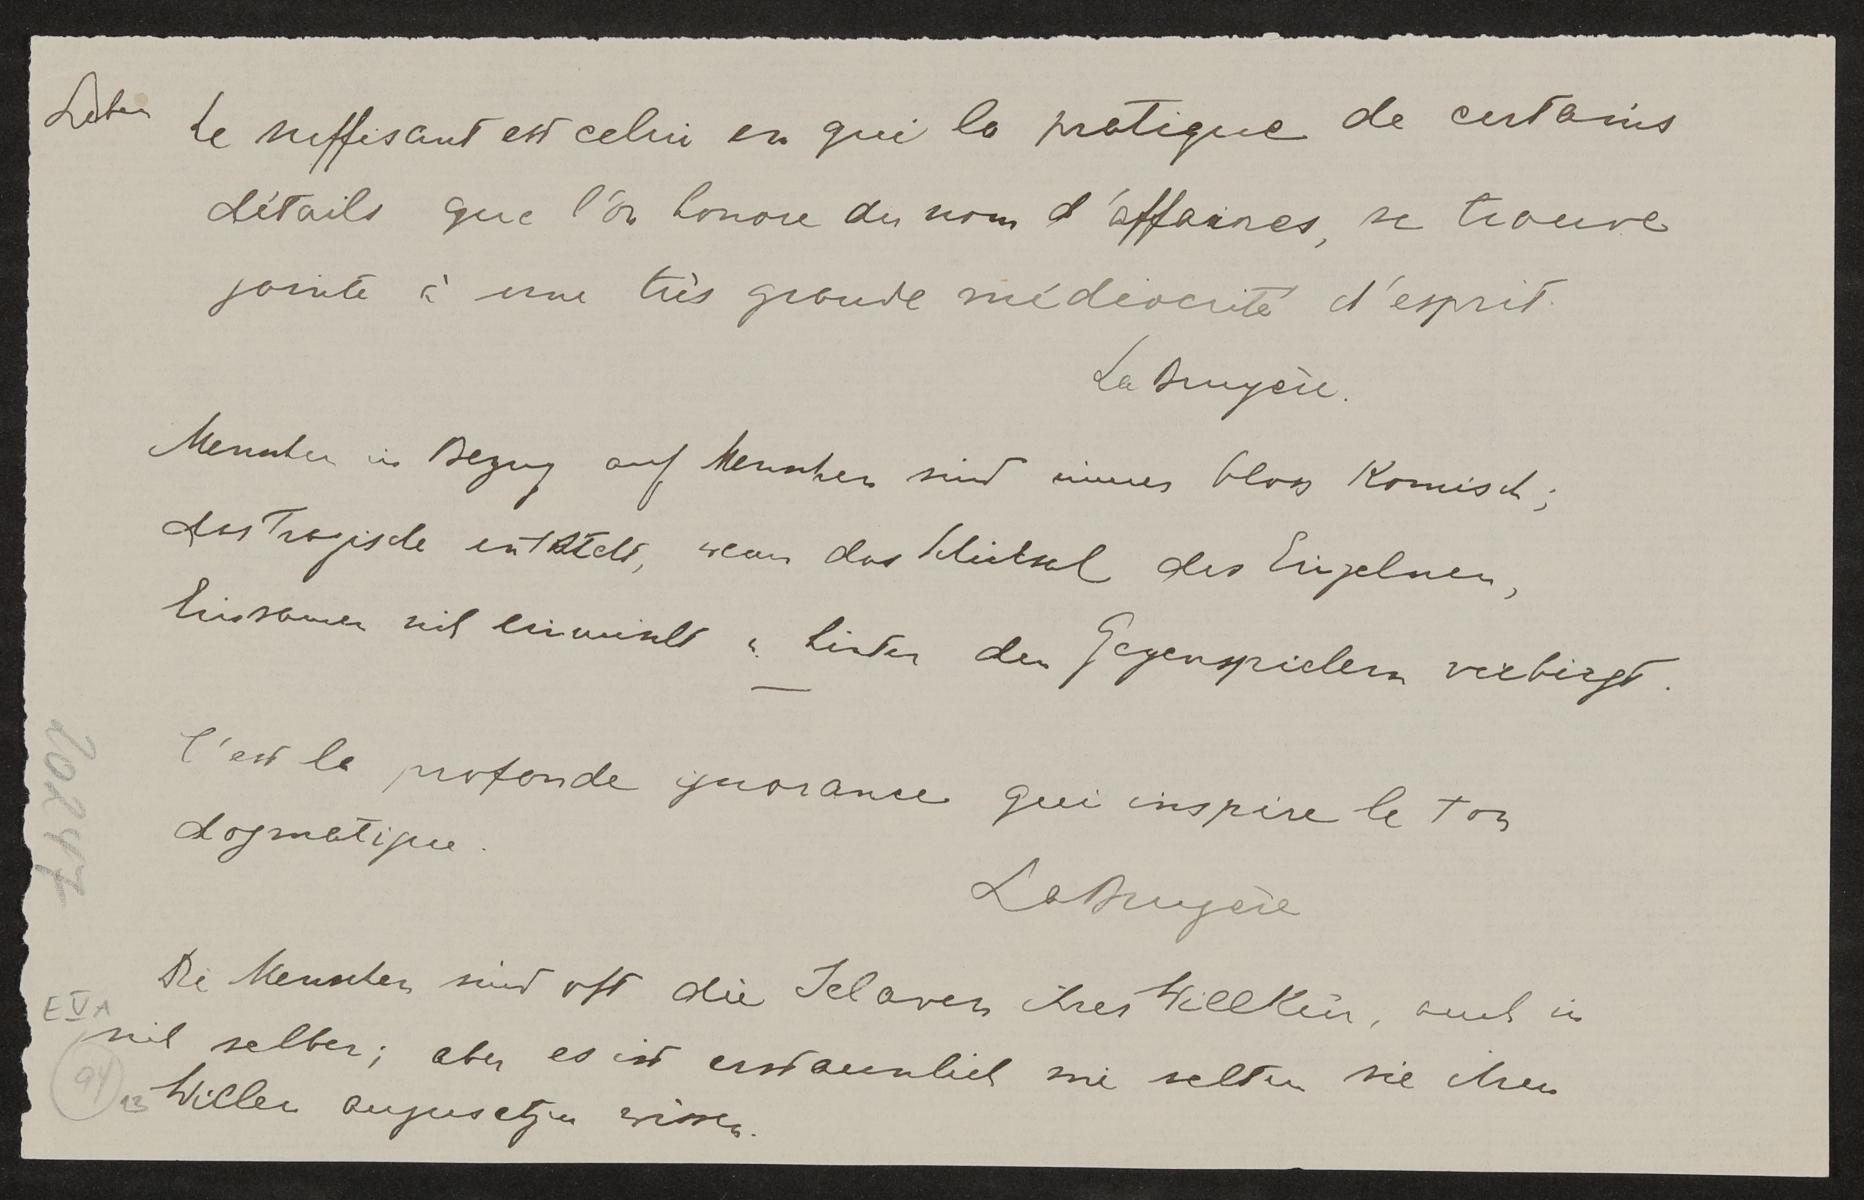 Leben
Le suffisant est celui en qui la pratique de certains
détails que l'on honore du nom d'affaires, se trouve
jointe à une très grande médiocrité d'esprit.
La Bruyère.
Menschen in Bezug auf Menschen sind immer bloss komisch;
das Tragische entsteht, wenn das Schicksal des Einzelnen,
Einsamen sich einmischt u. hinter den Gegenspielern verbirgt.
C'est la profonde ignorance qui inspire le ton
dogmatique.
La Bruyère
Die Menschen sind oft die Sclaven ihres Willkür, auch in
sich selber; aber es ist erstaunlich wie selten sie ihren
Willen anzusetzen wissen.
202447
E V A
94
13